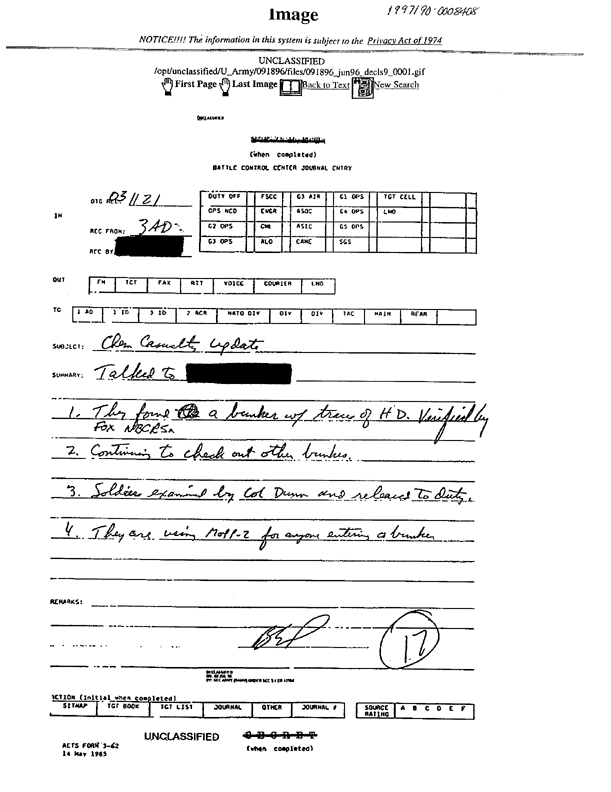 Image
1997190-0008408
NOTICE!!!! The information in this system is subject to the Privacy Act of 1974
UNCLASSIFIED
/opt/unclassified/U_Army/091896/files/091896_jun96_decls9_0001.gif
First Page Last Image Back to Text New Search
(when completed)
BATTLE CONTROL CENTER JOURNAL ENTRY
IN
DTG REC: 031121
REC FROM: 3AD
REC BY:
DUTY OFF FSCC G3 AIR G1 OPS TGT CELL
OPS NCO ENGR ASOC G4 OPS LNO
G2 OPS CML ASIC G5 OPS
G3 OPS ALO CANE SGS
OUT FM TCT FAX RTT VOICE COURIER LNO
TO 1 AD 1 ID 3 ID 2 ACR NATO DIV DIV DIV TAC MAIN REAR
SUBJECT: Chem Casualty update
SUMMARY: Talked to
1. They found a bunker w/ traces of HD. Verified by
Fox NBCRSn
2. Continuing to check out other bunkers.
3. Soldier examined by Col Dunn and released to duty.
4. They are using MOPP-2 for anyone entering a bunker
REMARKS:
17
ACTION (Initial when completed)
SITMAP TGT BOOK TGT LIST JOURNAL OTHER JOURNAL # SOURCE RATING A B C D E F
UNCLASSIFIED SECRET
(when completed)
AETS FORM 3-62
14 May 1985